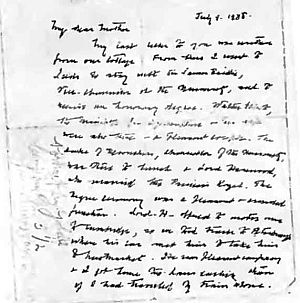 July 9. 1938.
My dear Mother
My last letter to you was written
from our cottage. From there I went to
Leeds to stay with Sir James Baillie,
Vice-Chancellor of the University, and to
receive an honorary degree. Walter
the Minister for Agriculture
were also there - a pleasant couple. The
Duke of Devonshire, Chancellor of the University,
was there to lunch & Lord Harewood,
who married the Princess Royal. The
degree ceremony was a pleasant & crowded
function. Lord H- offered to motor me
to Cambridge, so we took train to Peterborough
where his car met him to take him
to Newmarket. I'd a very pleasant companion
& I got home two hours earlier than
if I had travelled by train alone.